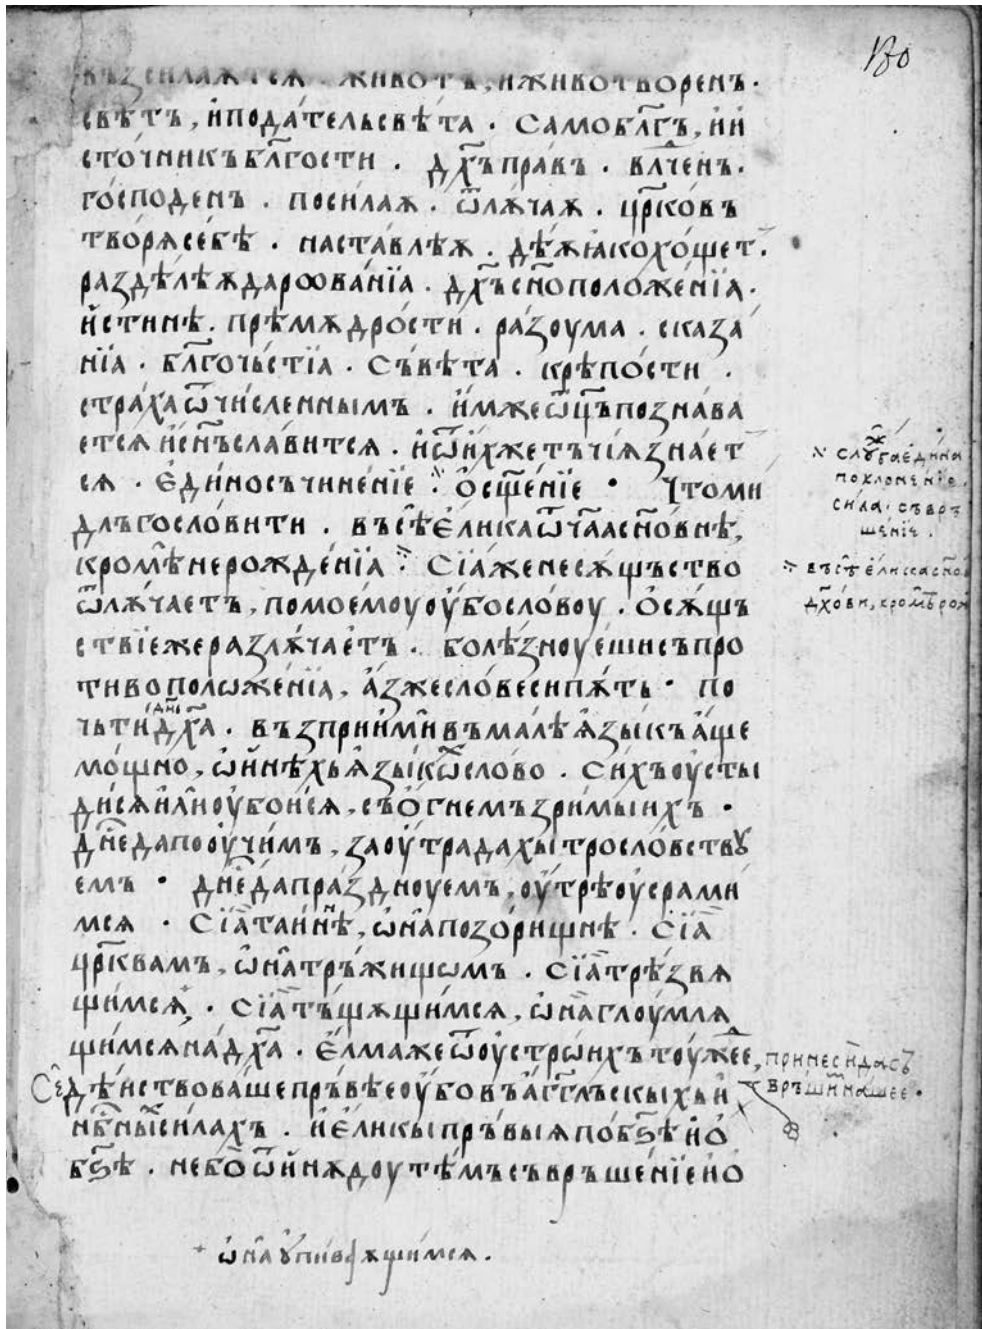 180
възсилаѫтсѧ · животъ, и животворенъ ·
свѣтъ, и податель свѣта · самобл҃гъ, и и
сточникъ бл҃гости · дх҃ъ правъ · влⷣчен ·
господен · посилаѫ · ѿлѫчаѫ · цр҃ковъ
творѧ себѣ · наставлѣѫ · дѣѫ ꙗко хощет ·
раздѣлѣѫ дарѡванїа · дх҃ъ сн҃оположенїа ·
истинѣ · прѣмѫдрости · разоума · сказа
нїа · бл҃гочьстїа · съвѣта · крѣпости ·
страха ѿчисленнымъ · имже ѿц҃ъ познава
ется и сн҃ъ славится · и ѿ ихже тъчїѧ знает
сѧ · единосъчиненїе · ѡсщ҃енїе · что ми
длъгословити · въсѣ елика ѿч҃аа сн҃овнѣ,
кромѣ нерожденїа · сїа же не сѫщьство
ѿлѫчаетъ, по моемоу оубо словоу · о сѫщь
ствїе же разлѫчаетъ · болѣзноуеши съпро
тивоположенїа, аз же словеси пѫть · по
чьти дн҃ь дх҃а · въз приими въмалѣ ѧзыкъ аще
мощно, ѡ инѣхь ѧзыкѡⷯ слово · сихъ оусты
дисѧ или оубоисѧ, съ огнемъ зримыихъ ·
дн҃е да пооучимъ, заоутра да хытрословствꙋ
емъ · дн҃е да празⷣноуемъ, оутрѣ оусрами
мсѧ · сїа таиннѣ, ѡна позорищнѣ · сїа
цр҃квамъ, ѡна тръжищомъ · сїа трѣзвѧ
щимсѧ · сїа тъщѫщимсѧ, ѡна глоумлѧ
щимсѧ на дх҃а · елма же ѿ оустрѡихъ тоужее, принесѣⷨ да съ
Се дѣиствоваше пръвѣе оубо въ агг҃льскыхь и връшим нашее ·
нбⷭ҇ныⷯ силахъ · и еликы пръвыѧ по бѕ҃ѣ и о
бѕ҃ѣ · не бо ѿинѫдоу тѣмъ съвръшенїе и о
слꙋга едина
поклоненїе,
сила · съвръ
шенїе ·
въсѣ елика сн҃о
дх҃ови, кромѣ рож
ѡна ꙋпиваѫщимсѧ ·